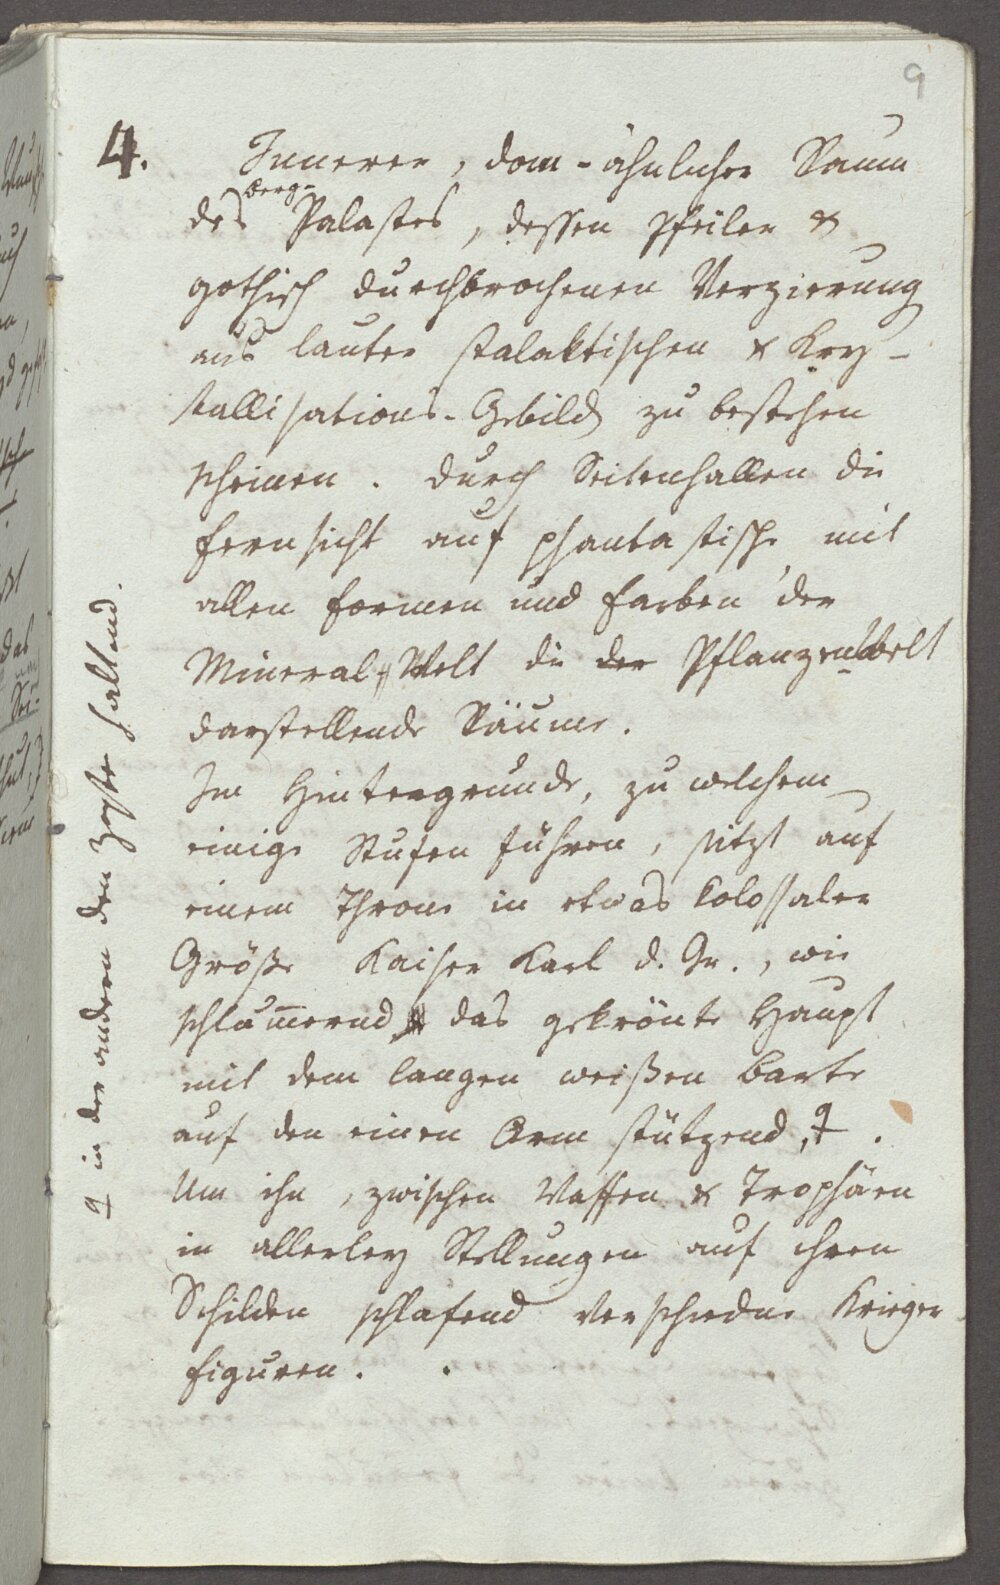 9
4. Innerer, dom-ähnlicher Raum
des Berg-Palastes, dessen Pfeiler &
gothisch durchbrochenen Verzierung
aus lauter stalaktischen & Kry-
stallisations-Gebild zu bestehen
scheinen. Durch Seitenhallen die
Fernsicht auf phantastische, mit
allen Formen und Farben der
Mineral-Welt die der Pflanzenwelt
darstellende Räume.
Im Hintergrunde, zu welchem
einige Stufen führen, sitzt auf
einem Throne in etwas kolossaler
Größe Kaiser Karl d. Gr., wie
schlum̅ernd das gekrönte Haupt
mit dem langen weißen Barte
auf den einen Arm stützend, ♀.
Um ihn, zwischen Waffen & Trophäen
in allerley Stellungen auf ihren
Schilden schlafend verschiedne Krieger
figuren.
♀ in der andern den Zepter haltend.